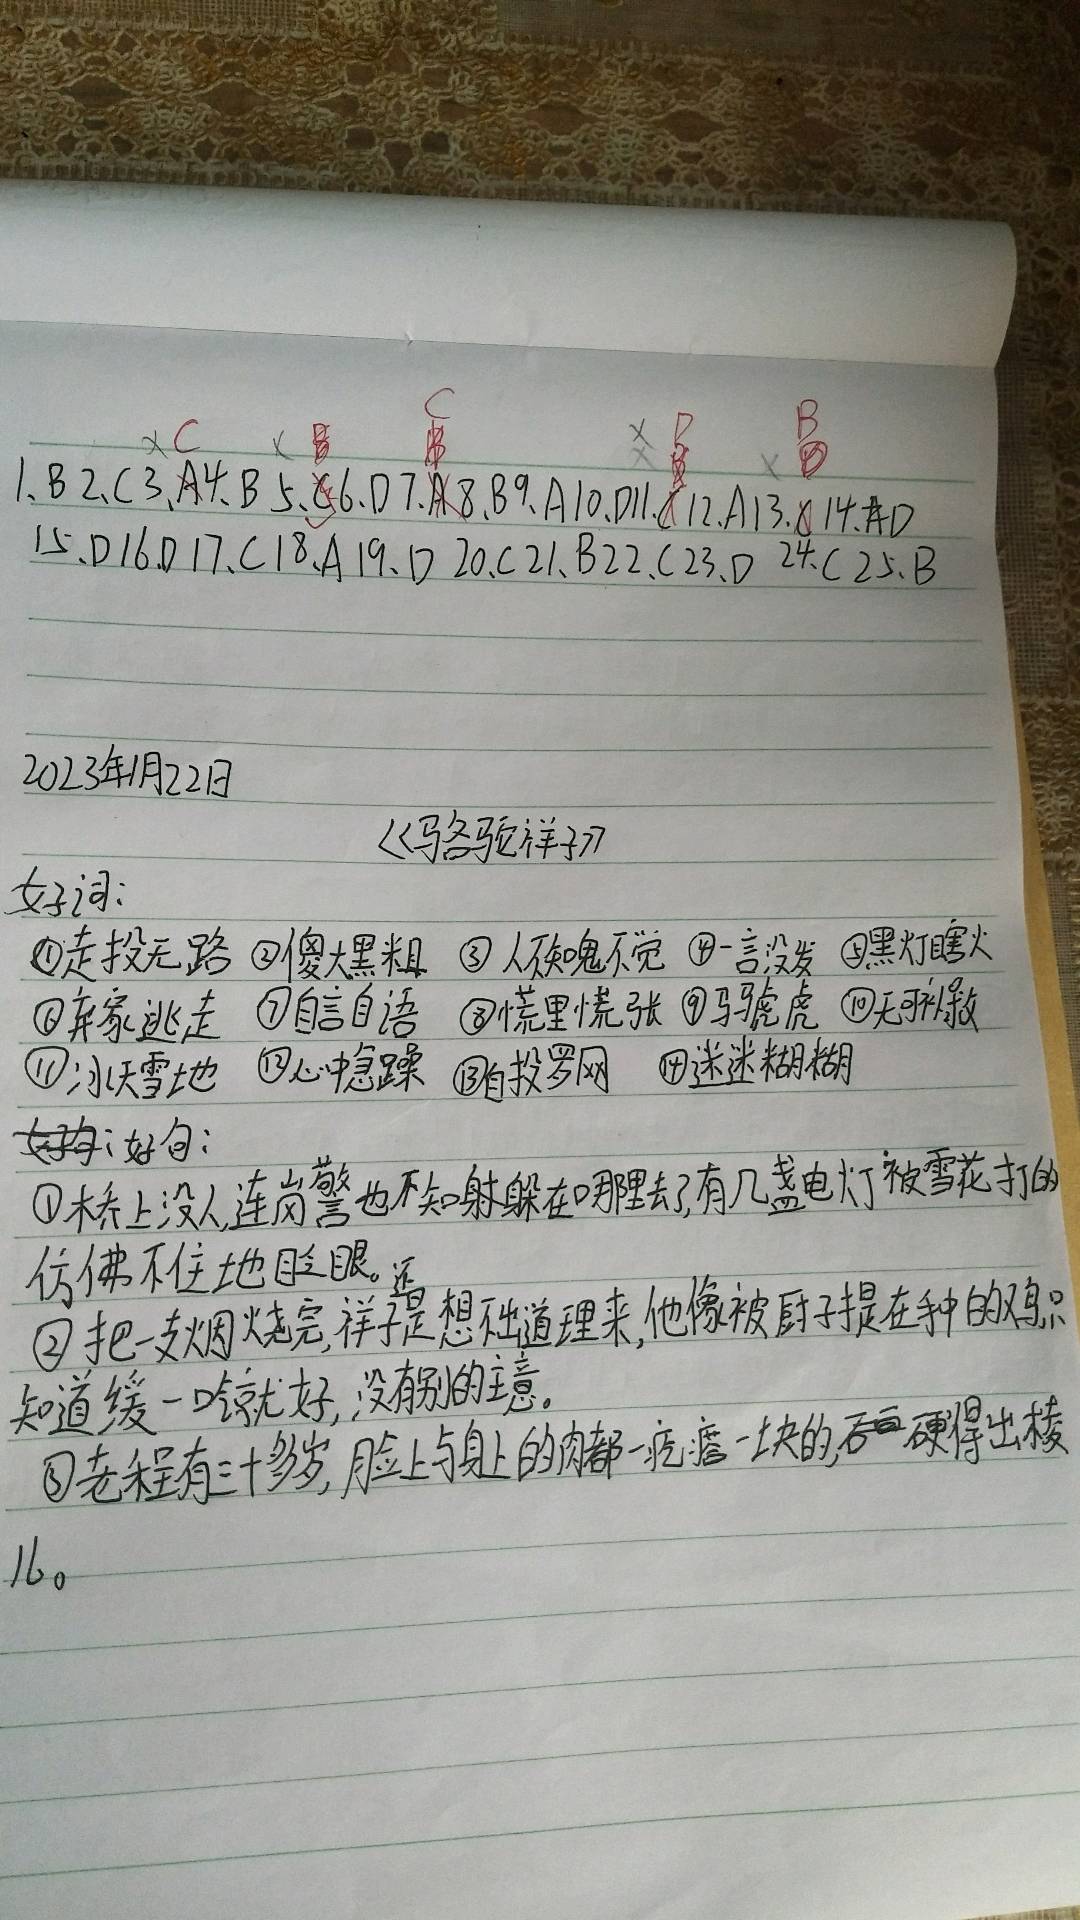 C B C D B
1、B 2、C 3、A 4、B 5、C 6、D 7、A 8、B 9、A 10、D 11、C 12、A 13、C 14、A D
15、D 16、D 17、C 18、A 19、D 20、C 21、B 22、C 23、D 24、C 25、B
2023年1月22日
《骆驼祥子》
好词:
①走投无路 ②傻大黑粗 ③人不知鬼不觉 ④一言没发 ⑤黑灯瞎火
⑥弃家逃走 ⑦自言自语 ⑧慌里慌张 ⑨马马虎虎 ⑩无可补救
⑪冰天雪地 ⑫心中急躁 ⑬自投罗网 ⑭迷迷糊糊
好句:
①桥上没人,连岗警也不知躲在哪里去了,有几盏电灯被雪花打的
仿佛不住地眨眼。
②把一支烟烧完,祥子还是想不出道理来,他像被厨子提在手中的鸡,只
知道缓一口气就好,没有别的主意。
③老程有三十多岁,脸上与身上的肉都一疙瘩一块的,硬得出棱
儿。